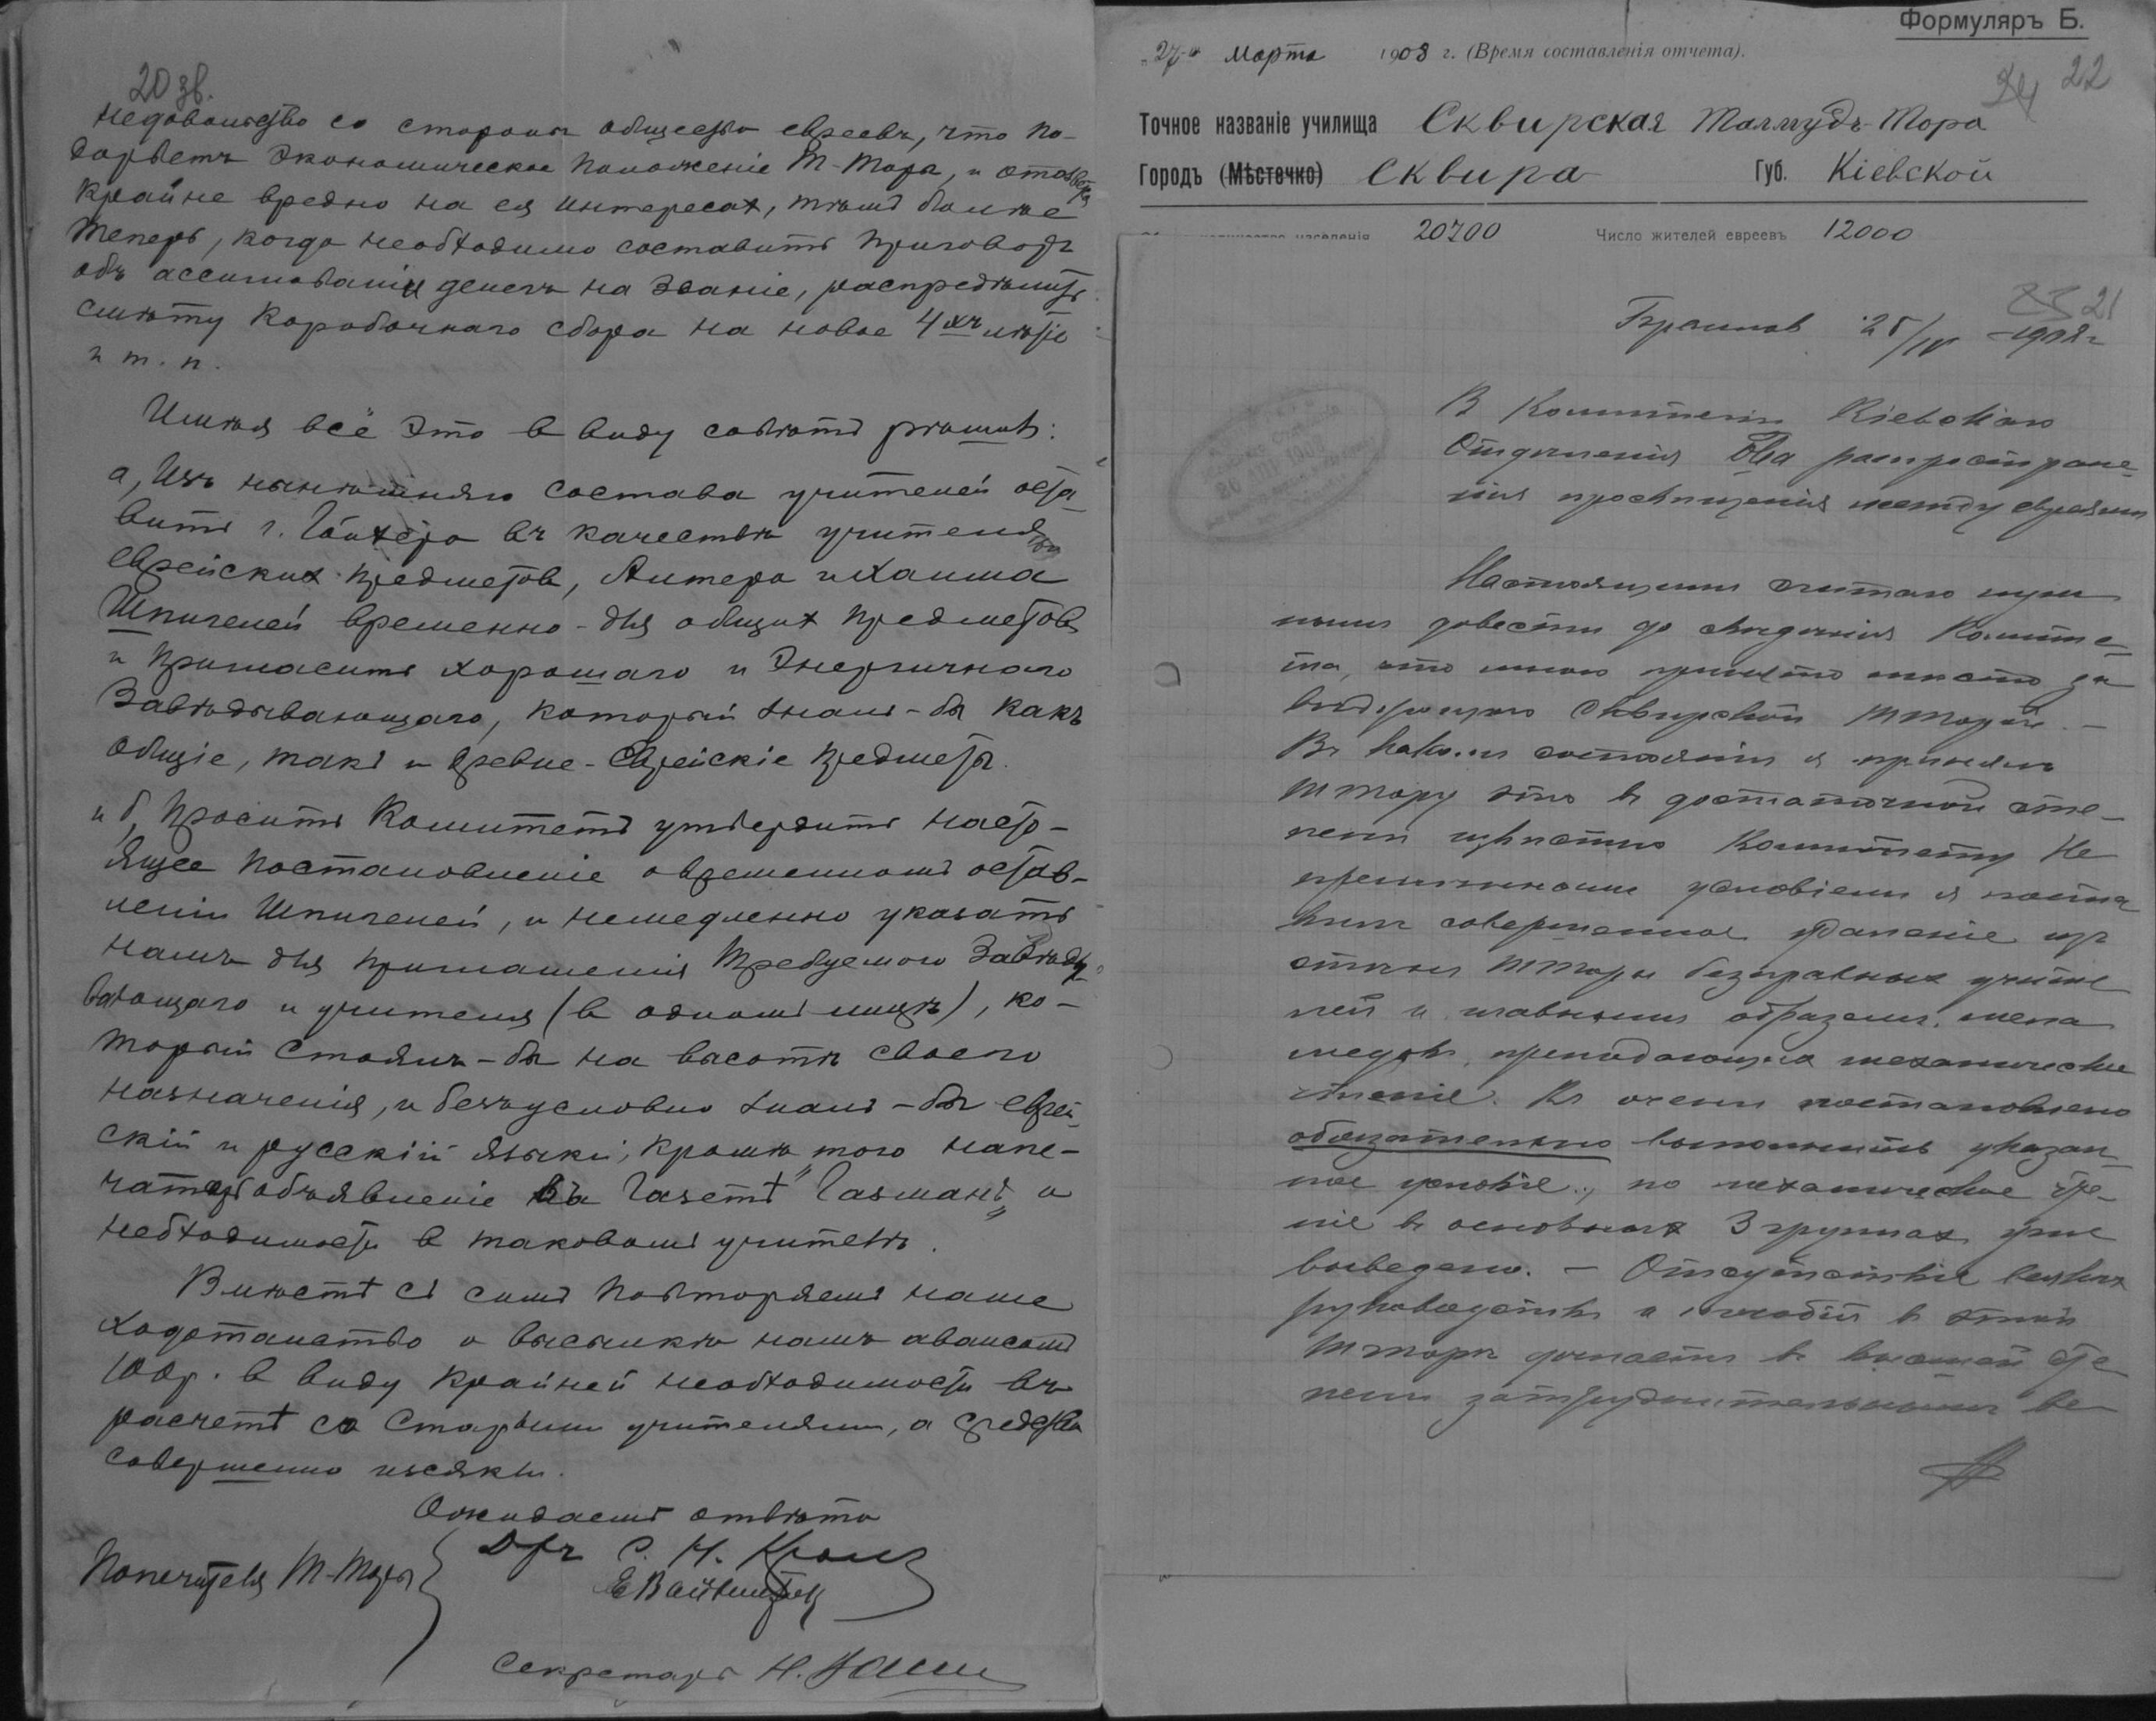 20 зв.
недовольство со стороны общества евреевъ, что по-
дорветъ экономическое положеніе Т-Торы, и отозвется
крайне вредно на ея интересах, тѣмъ болѣе
теперь, когда необходимо составить приговоръ
объ ассигнованіи денегъ на зданіе, распредѣлить
смѣту коробочнаго сбора на новое 4хъ лѣтіе
и т. п.
Имѣя всё это в виду совѣтъ рѣшилъ:
а, Изъ нынѣшняго состава учителей оста-
вить г. въ качествѣ учителя
еврейских предметов, Алтера и Хаима
Шпигелей временно - для общих предметовъ
и пригласить хорошаго и энергичнаго
Завѣдывающаго, который зналъ-бы какъ
общіе, такъ и древне-Еврейскіе предметы.
и б, просить Комитетъ утвердить насто-
ящее постановленіе о временномъ остав-
леніи Шпигелей, и немедленно указать
намъ для приглашенія требуемого Завѣды-
вающаго и учителя (в одномъ лицѣ), ко-
торый стоялъ-бы на высотѣ своего
назначенія, и безъусловно зналъ-бы еврей-
скій и русскій языки, кромѣ того напе-
чатать объявленіе въ газетѣ "Газманъ" о
необходимости в таковомъ учителѣ.
Вмѣстѣ съ симъ повторяемъ наше
ходотайство о высылкѣ намъ авансомъ
100р. в виду крайней необходимости въ
расчетѣ со старыми учителями, а средства
совершенно изсякли.
Ожидаемъ отвѣта
Попечители Т-Торы
Дръ С. И.
Е Вайнштейн
Секретарь Н.
Формуляръ Б.
"27-го марта 1908 г. (Время составленія отчета).
22
Точное названіе училища Сквирская Талмудъ-Тора
Городъ (Мѣстечко) Сквира Губ. Кіевской
населенія 20700 Число жителей евреевъ 12000
21
25/IV -1908 г
В Комитетъ Кіевскаго
Отдѣленія О-ва распростране-
нія просвѣщенія между евреями
Настоящимъ считаю нуж
нымъ довести до свѣдѣнія Комите-
та, что мною принято мѣсто за
вѣдующаго Сквирской Т Торой. -
Въ каком состояніи я принялъ
Т Тору это в достаточной сте-
пени извѣстно Комитету Не
премѣннымъ условіемъ я поста
вилъ совершенное удаленіе изъ
стѣнъ Т Торы безправных учите
лей и главнымъ образомъ, мела
медовъ, преподающихъ механическое
чтеніе. постановлено
обязательно выполнить указан-
ное условіе, но механическое чте-
ніе в основныхъ 3 группах уже
выведено. - Отсутствіе всякихъ
руководствъ и пособій в этой
Т Торѣ дѣлаетъ в высшей сте
пени затруднительнымъ ве-